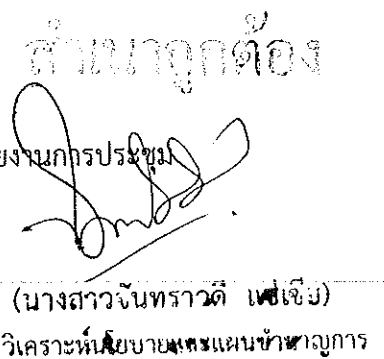 สำเนาถูกต้อง
ยงานการประชุม
(นางสาวจันทราวดี แซ่เซีม)
วิเคราะห์นโยบายและแผนชำนาญการ